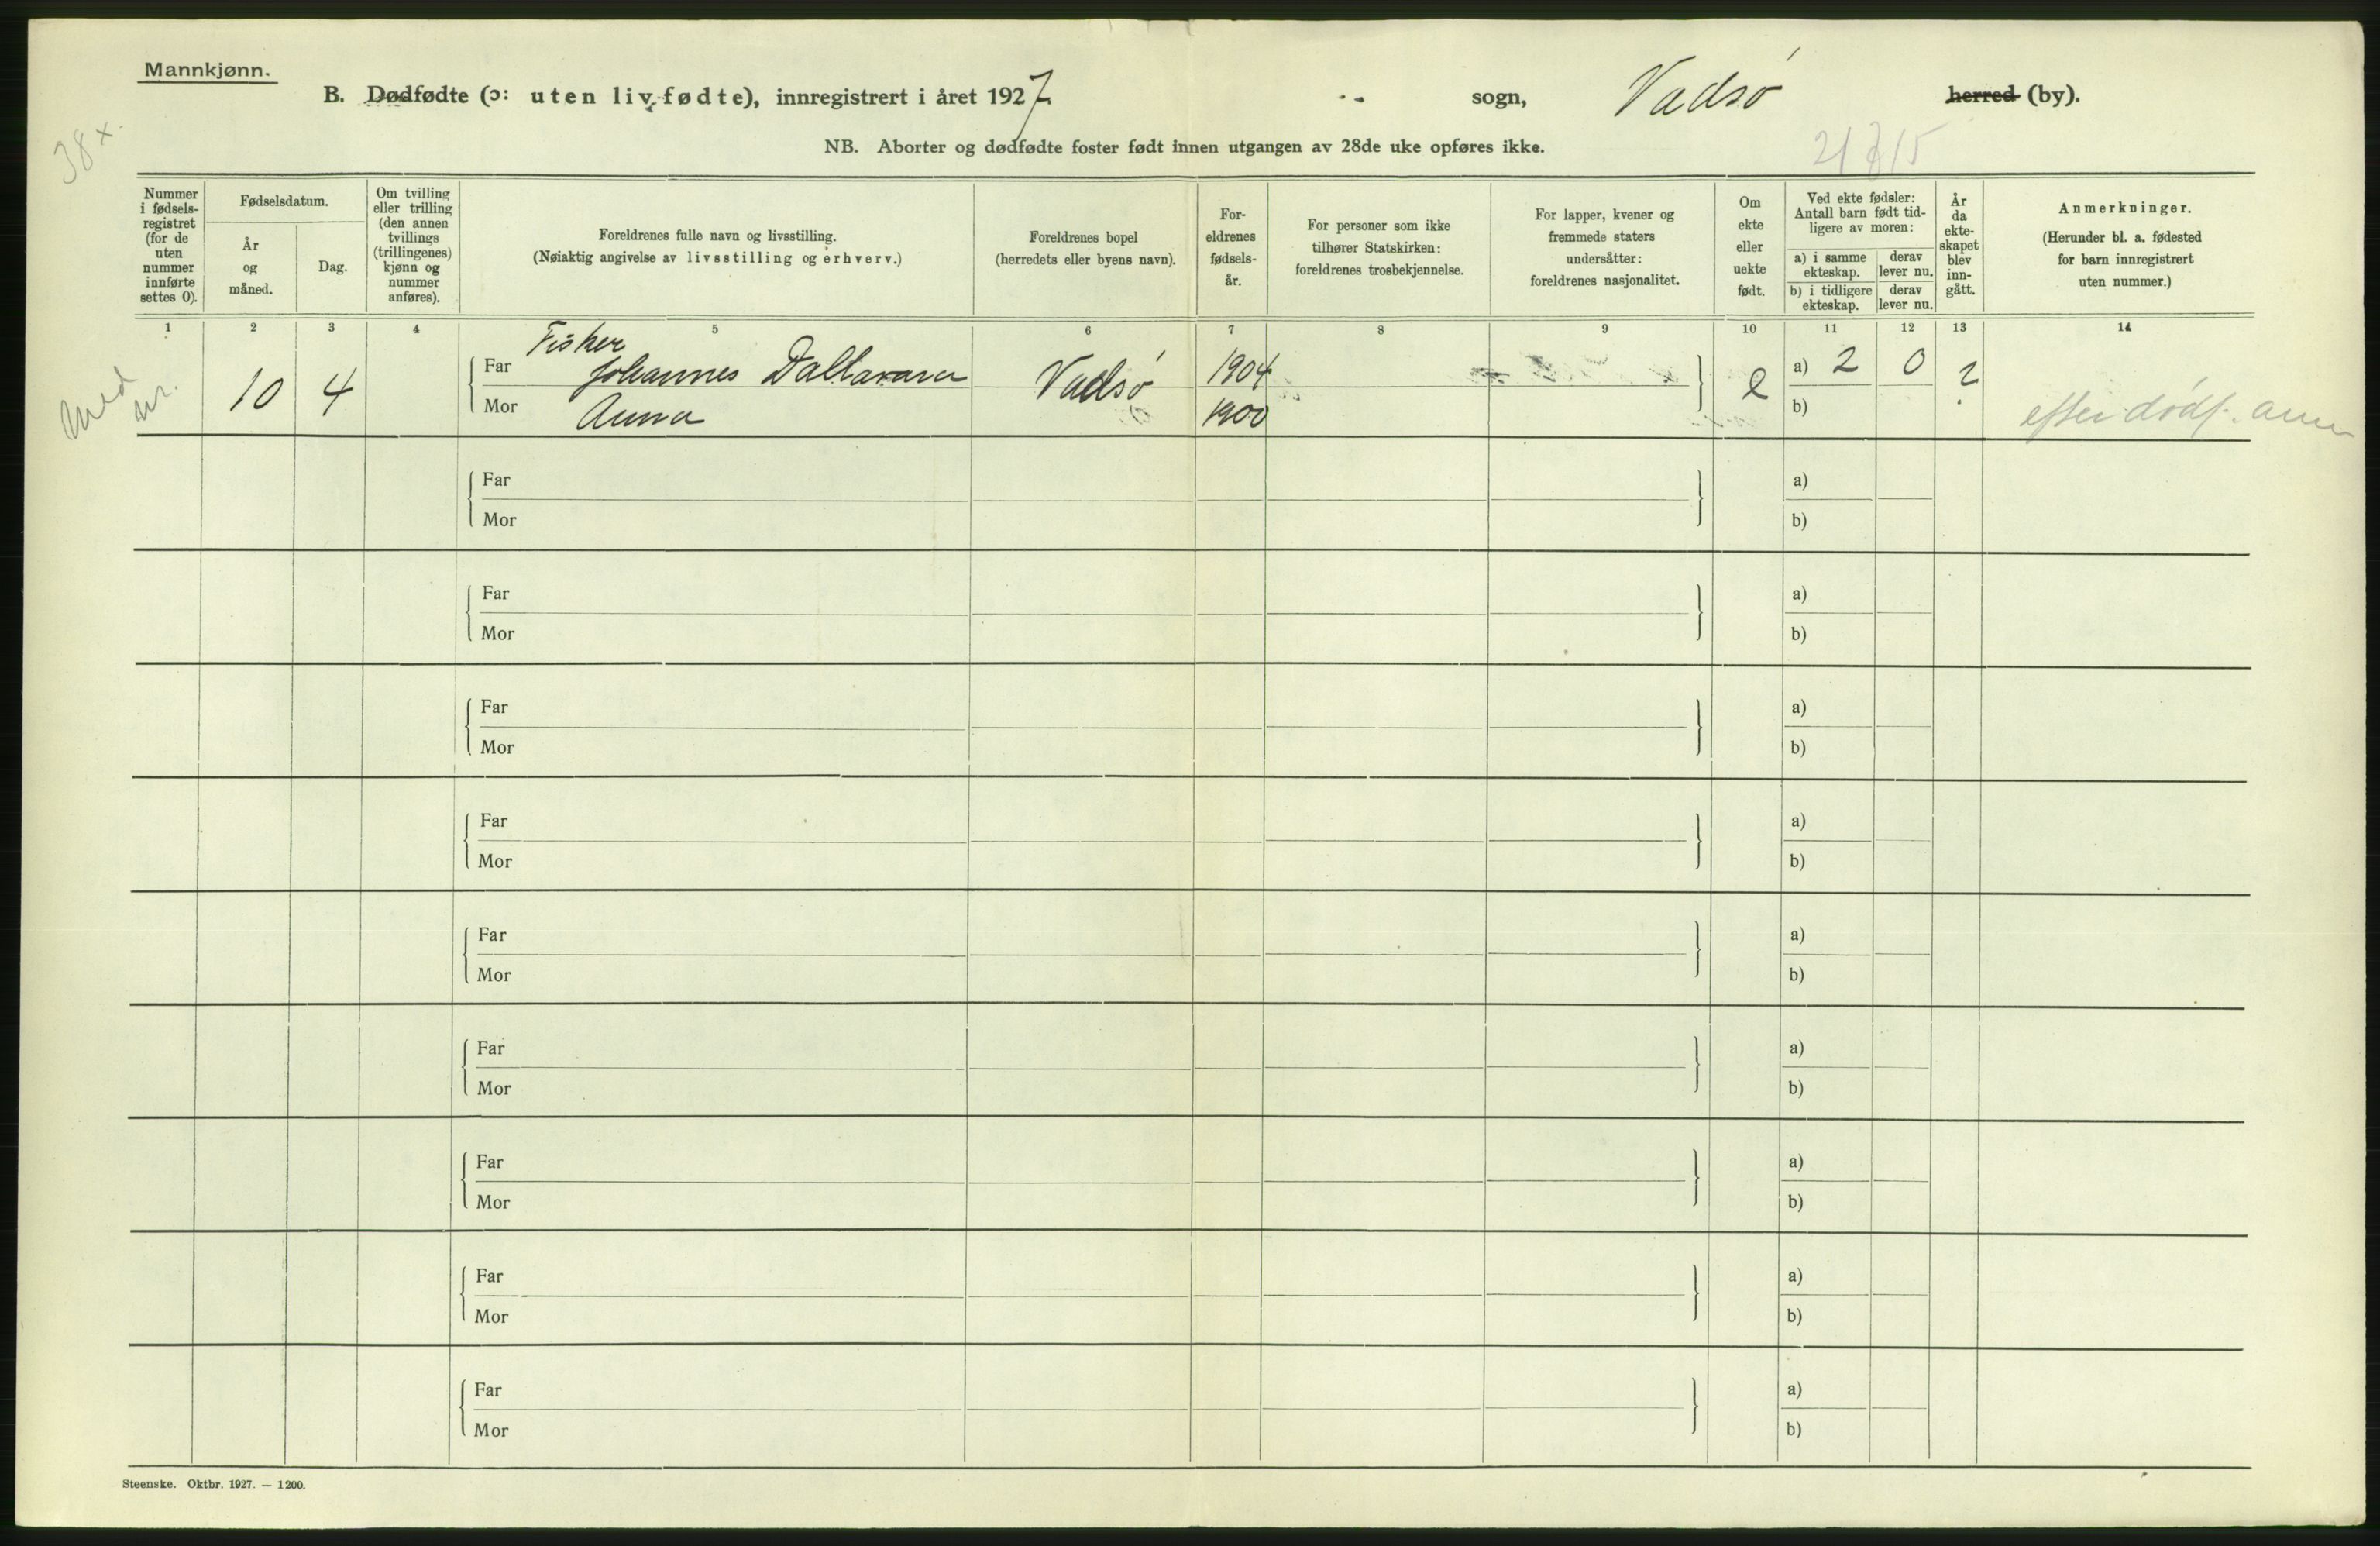 Mannkjønn.
B. Dødfødte (ɔ: uten liv fødte), innregistrert i året 1927 sogn, Vadsø herred (by).
NB. Aborter og dødfødte foster født innen utgangen av 28de uke opføres ikke.
38 x.
Nummer
i fødsels-
registret
(for de
uten
nummer
innførte
settes 0).
Fødselsdatum.
År
og
måned.
Dag.
Om tvilling
eller trilling
(den annen
tvillings
(trillingenes)
kjønn og
nummer
anføres).
Foreldrenes fulle navn og livsstilling.
(Nøiaktig angivelse av livsstilling og erhverv.)
Foreldrenes bopel
(herredets eller byens navn).
For-
eldrenes
fødsels-
år.
For personer som ikke
tilhører Statskirken:
foreldrenes trosbekjennelse.
For lapper, kvener og
fremmede staters
undersåtter:
foreldrenes nasjonalitet.
Om
ekte
eller
uekte
født.
Ved ekte fødsler:
Antall barn født tid-
ligere av moren:
a) i samme
ekteskap.
derav
lever nu.
b) i tidligere
ekteskap.
derav
lever nu.
År
da
ekte-
skapet
blev
inn-
gått.
Anmerkninger.
(Herunder bl. a. fødested
for barn innregistrert
uten nummer.)
1 2 3 4 5 6 7 8 9 10 11 12 13 14
Med
nr.
10 4
Fisker
Far Johannes Vadsø 1904 e a) 2 0 ?
Mor Anna 1900 b) efter dødf.
Far a)
Mor b)
Far a)
Mor b)
Far a)
Mor b)
Far a)
Mor b)
Far a)
Mor b)
Far a)
Mor b)
Far a)
Mor b)
Far a)
Mor b)
Far a)
Mor b)
Steenske. Oktbr. 1927. — 1200.